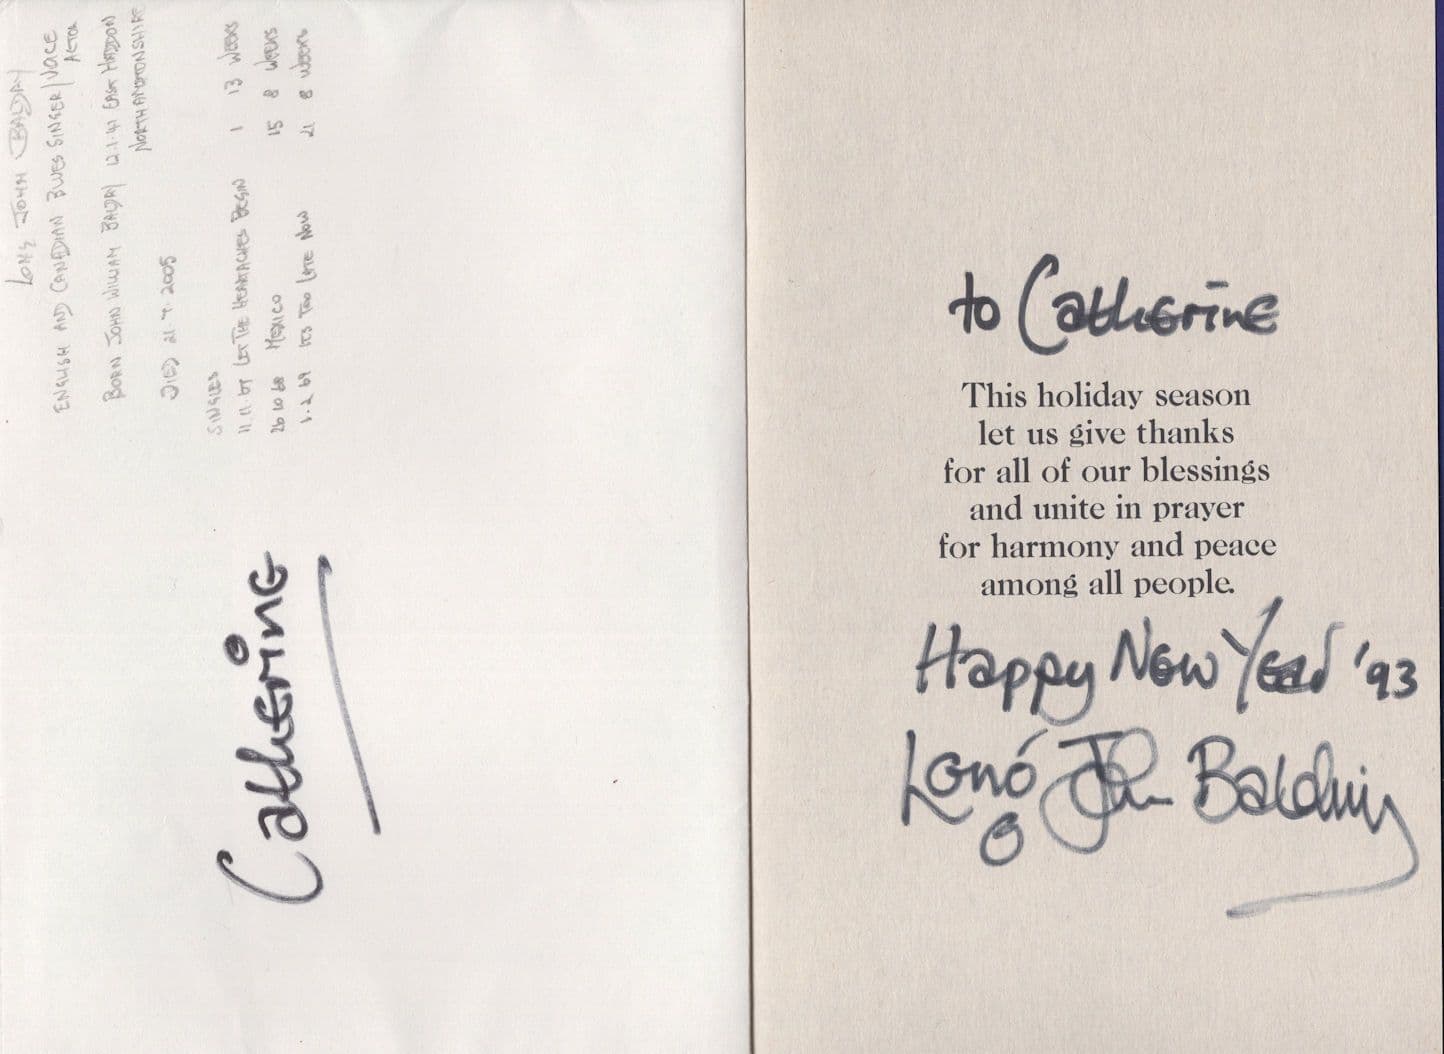 LONG JOHN BALDRY
ENGLISH AND CANADIAN BLUES SINGER/VOICE
ACTOR
BORN JOHN WILLIAM BALDRY 12.1.41 EAST HADDON
NORTHAMPTONSHIRE
DIED 21.7.2005
SINGLES
11.11.67 LET THE HEARTACHES BEGIN 1 13 WEEKS
26 10 68 MEXICO 15 8 WEEKS
1.2 69 ITS TOO LATE NOW 21 8 WEEKS
Catherine
to Catherine
This holiday season
let us give thanks
for all of our blessings
and unite in prayer
for harmony and peace
among all people.
Happy New Year '93
Long John Baldry